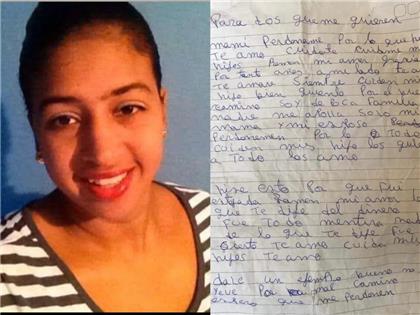 Para Los que me quieren
mami Perdoneme Por lo que
Te amo Cuidate Cuidame mi
hijos Ramon mi amor
Por tanto años a mi lado
Te amare Siempre Cuiden
hijo bien Por el
camino SOY de Poca Familia
nadie me apolla Solo mi
mama y mi esposo
Perdonemen Por lo Todo
cuiden mis hijo los
a Todo los amo
hise esto Por que Fui
estafada Ramon mi amor lo
que Te dije del dinero
Fue Todo mentira nada
de lo que Te dije Fue
cierto Te amo Cuida mis
hijos Te amo
dale un ejemplo bueno no
Por mal Camino
espero que me Perdonen